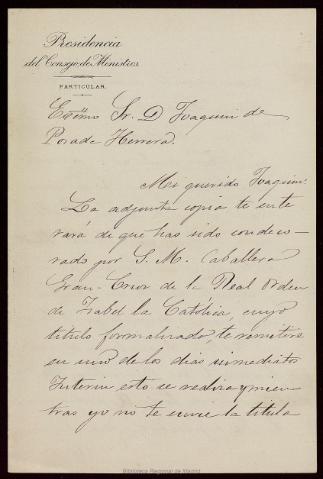 Presidencia
del Consejo de Ministros
PARTICULAR.
Exmo Sr. D Joaquin de
Posada Herrera.
Mi querido Joaquin:
La adjunta copia te ente
rará de que has sido condeco-
rado por S. M. Caballero
Gran-Cruz de la Real Orden
de Isabel la Católica, cuyo
titulo formalizado, te remitiré
en uno de los dias inmediatos
Interin esto se realiza y mien
tras yo no te envie la titulo
Biblioteca Nacional de Madrid